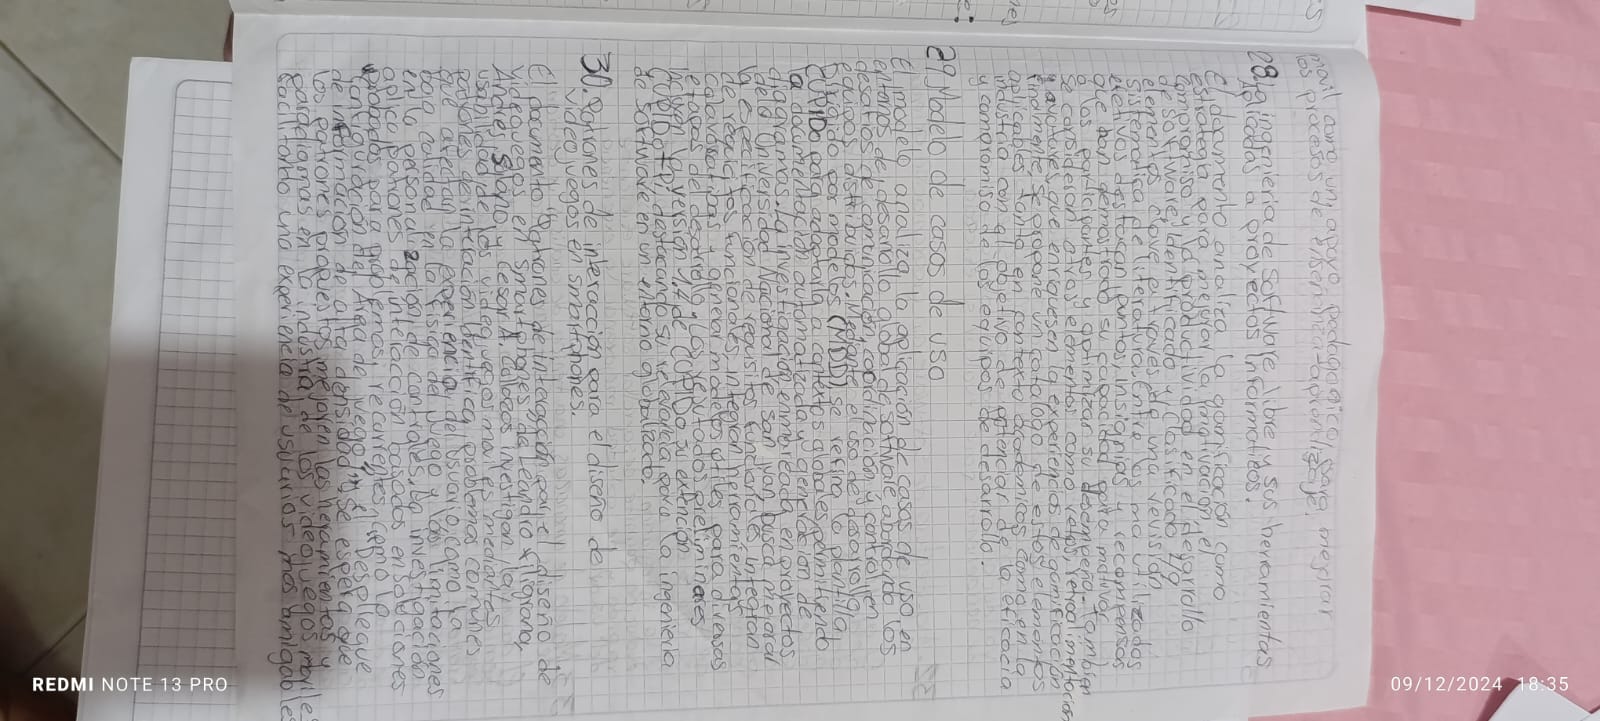 movil como un apoyo pedagogico para mejorar
los procesos de enseñanza-aprendizaje.
28. Ingenieria de Software libre in sus herramientas
aplicadas a proyectos informaticos.
El documento analiza la gamificación como
estrategia para mejorar la motivación, el
compromiso y la productividad en el desarrollo
de software, identificado y clasificado 19
elementos clave a través de una revisión
sistematica de literatura. Entre los más utilizados
efectivos destacan puntos, insignias y recompensas
que han demostrado su capacidad para motivar
a los participantes y optimizar su desempeño. También
se consideran otros elementos como retos, retroalimentación
y avatares, que enriquecen la experiencia de gamificación
Finalmente, se propone un catálogo de estos elementos
aplicables tanto en contexto academicos como en la
industria con el objetivo de potenciar de la eficacia
y compromiso de los equipos de desarrollo.
29. Modelo de casos de uso
El modelo analiza la aplicación de casos de uso en
entornos de desarrollo global de software abordando los
desafios de comunicación, coordinación y control en
equipos distribuidos. el uso de Desarrollo
Dirigido por modelos (MDD) se refina la plantilla
CUPIDo para adaptarla a contextos globales permitiendo
a documentación automatizada y generación de
diagramas. La investigación enmarcada en proyectos
de la Universidad Nacional de San Juan, busca mejorar
la especificación de requisitos mediante
de requisitos funcionales integran herramientas
colaborativas y generar modelos utiles para diversas
etapas del desarrollo. Los resultados preliminares
incluyen la versión 4.2 de CUPIDo su extención
CUPIDo +D, destacando su relevancia para la ingenieria
de software en un entorno globalizado.
30. Patrones de interacción para el diseño de
videojuegos en smartphones.
El documento "Patrones de interacción para el diseño de
videojuegos en smartphones" de
Andre y Cesar A. Collazos investigan la
usabilidad de los videojuegos moviles mediante
patrones de interacción. Identifica problemas comunes
que afectan la experiencia del usuario como la
baja calidad en la fisica del juego y las limitaciones
en la personalización de controles. La investigación
aplica patrones de interacción basados en soluciones
probadas para problemas recurrentes, como la
"configuración del Area de Juego" y el "despliegue
de información de alta densidad". Se espera que
los patrones propuestos mejoren las herramientas y
paradigmas en la industria de los videojuegos moviles
facilitando una experiencia de usuarios más amigables
REDMI NOTE 13 PRO
09/12/2024 18:35